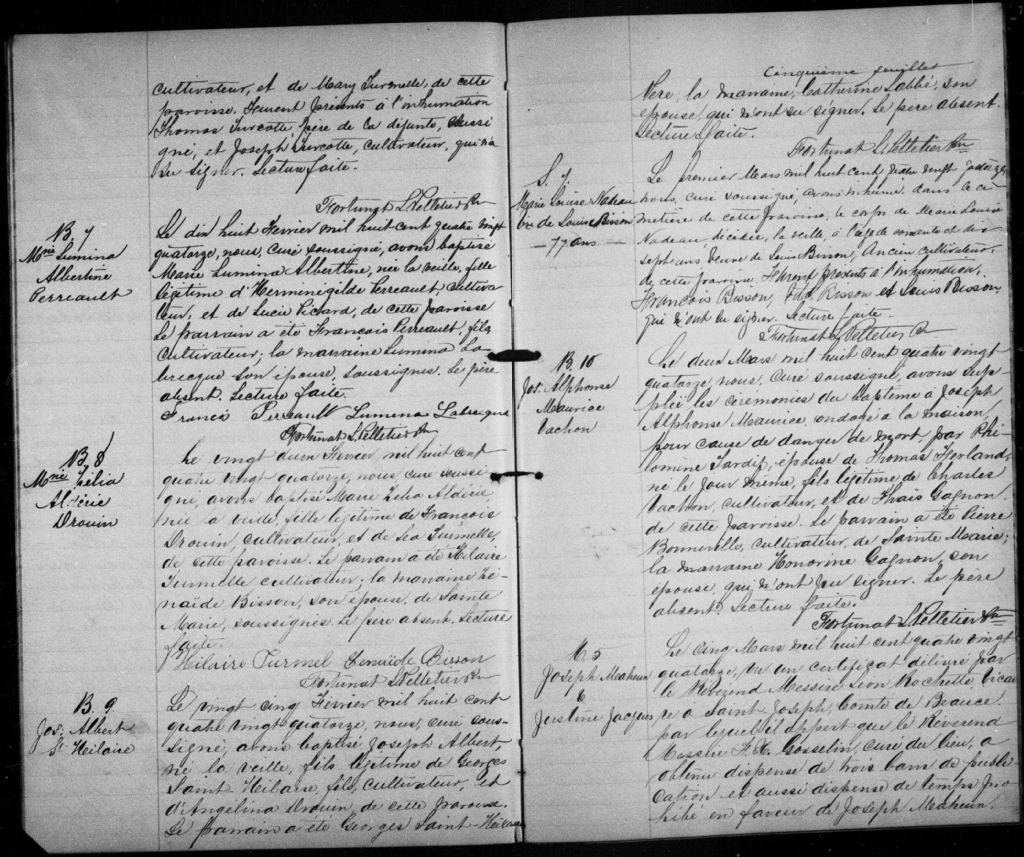 cultivateur, et de Mary Turmelle, de cette
paroisse. Furent présents à l'inhumation
Thomas Turcotte, père de la défunte, soussi
gné, et Joseph Turcotte, cultivateur, qui n'a
su signer. Lecture faite.
Fortunat L Pelletier Ptre
B. 7
Mie Lumina
Albertine
Perreault
Le dix huit Février mil huit cent quatre vingt
quatorze, nous, curé soussigné, avons baptisé
Marie Lumina Albertine, née la veille, fille
légitime d'Herménégilde Perreault, cultiva
teur, et de Lucie Sicard, de cette paroisse
Le parrain a été François Perreault, fils,
cultivateur; la marraine Lumina La
brecque son épouse, soussignés. Le père
absent. Lecture faite.
Francis Perreault Lumina Labrecque
Fortunat L Pelletier Ptre
B. 8
Mie Zélia
Aldérie
Drouin
Le vingt deux Février mil huit cent
quatre vingt quatorze, nous curé soussi
gné, avons baptisé Marie Zélia Aldérie
née la veille, fille légitime de François
Drouin, cultivateur, et de Léa Turmelle,
de cette paroisse. Le parrain a été Hilaire
Turmelle cultivateur; la marraine Zé-
naïde Bisson, son épouse, de Sainte
Marie, soussignés. Le père absent. Lecture
faite.
Hilaire Turmel Zenaïde Bisson
Fortunat L Pelletier Ptre
B. 9
Jos. Albert
St Hilaire
Le vingt cinq Février mil huit cent
quatre vingt quatorze, nous, curé sous-
signé, avons baptisé Joseph Albert,
né la veille, fils légitime de Georges
Saint Hilaire, fils, cultivateur, et
d'Angelina Drouin, de cette paroisse.
Le parrain a été Georges Saint-Hilaire
Cinquième feuillet
père, la marraine, Catherine Labbé, son
épouse, qui n'ont su signer. Le père absent.
Lecture faite.
Fortunat L Pelletier Ptre
S. 7
Marie Louise Nadeau
Vve de Louis Bisson
— 77 ans —
Le premier Mars mil huit cent quatre vingt quatorze,
nous, curé soussigné, avons inhumé dans le ci
metière de cette paroisse, le corps de Marie Louise
Nadeau, décédée, la veille, à l'âge de soixante et dix
sept ans, veuve de Louis Bisson, ancien cultivateur,
de cette paroisse. Furent présents à l'inhumation,
François Bisson, Bisson et Louis Bisson,
qui n'ont su signer. Lecture faite.
Fortunat L Pelletier Ptre
B. 10
Jos. Alphonse
Maurice
Vachon
Le deux Mars mil huit cent quatre vingt
quatorze, nous, curé soussigné, avons sup-
pléé les cérémonies du baptême à Joseph
Alphonse Maurice, ondoyé à la maison,
pour cause de danger de mort, par Phi
lomine Tardif, épouse de Thomas Ferland,
né le jour même, fils légitime de Charles
Vachon, cultivateur, et de Thaïs Gagnon,
de cette paroisse. Le parrain a été Pierre
Bonneville, cultivateur, de Sainte Marie;
la marraine Honorine Gagnon, son
épouse, qui n'ont su signer. Le père
absent. Lecture faite.
Fortunat L Pelletier Ptre
M. 5
Joseph Maheux
&
Justine Jacques
Le cinq Mars mil huit cent quatre vingt
quatorze, vu un certificat délivré par
le Révérend Messire Léon Rochette, vicai
re à Saint Joseph, Comté de Beauce,
par lequel il appert que le Révérend
Messire F. X. Gosselin, curé du lieu, a
obtenu dispense de trois bans de publi
cation et aussi dispense de temps pro
hibé en faveur de Joseph Maheux,